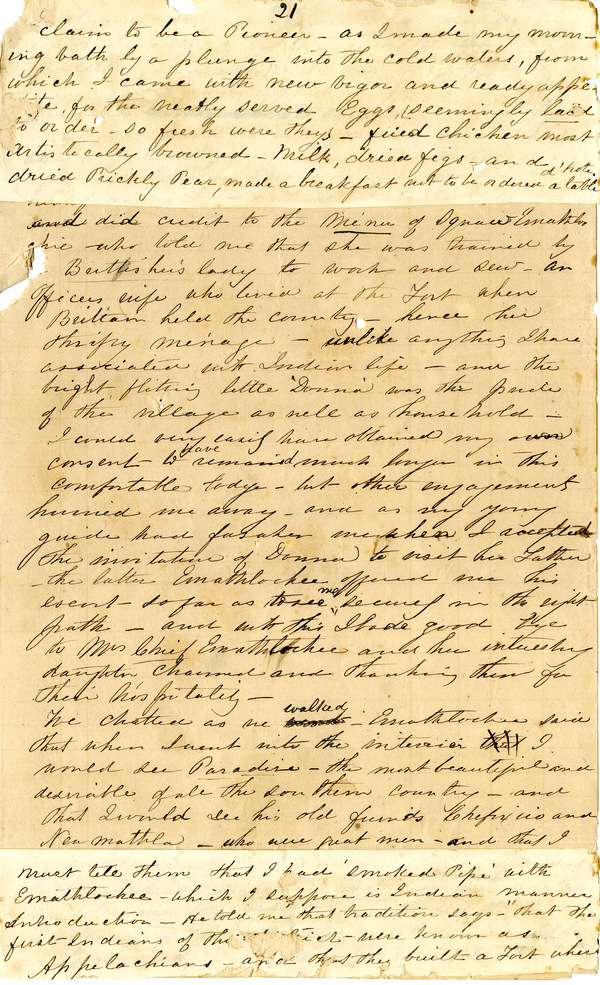 21
claim to be a Pioneer - as I made my morn-
ing bath by a plunge into the cold waters, from
which I came with new vigor and ready appe-
tite for the neatly served Eggs, seemingly laid
to order - so fresh were they - fried chicken most
artistically browned - Milk, dried figs - and
dried Prickly Pear, made a breakfast not to be ordered a' table d'hote
and did credit to the Menu of Emathloo
chie - who told me that she was trained by
Brittisher's lady to work and sew - an
Officers wife who lived at the Fort when
Brittain held the country - hence her
thrifty menage - unlike anything I have
associated with Indian life - and the
bright flitting little 'Donna' was the pride
of the village as well as household -
I could very easily have obtained my own
consent to have remained much longer in this
comfortable lodge - but other engagements
hurried me away - and as my young
guide had forsaken me when I accepted
the invitation of Donna to visit her Father
- the latter Emathlochee offered me his
escort - so far as to see me securely in the right
path - and with this I bade good bye
to Mrs Chief Emathlochee and her interesting
daughter charmed and thanking them for
their hospitality -
We chatted as we walked - Emathlochee said
that when I went into the interior I
would see Paradise - the most beautiful and
desirable of all the southern country - and
that I would see his old friends Chefixico and
Neamathla - who were great men - and that I
must tell them that I had 'smoked Pipe' with
Emathlochee - which I suppose is Indian manner
Introduction - He told me that tradition says - "that the
first Indians of the were known as
Appelachians - and that they built a Fort where